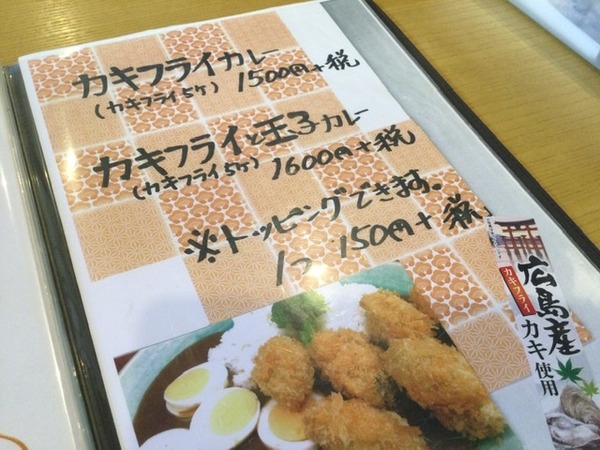 カキフライカレー
(カキフライ5ケ) 1500円+税
カキフライと玉子カレー
(カキフライ5ケ) 1600円+税
※トッピングできます。
1つ 150円+税
広島産
カキフライ
カキ使用